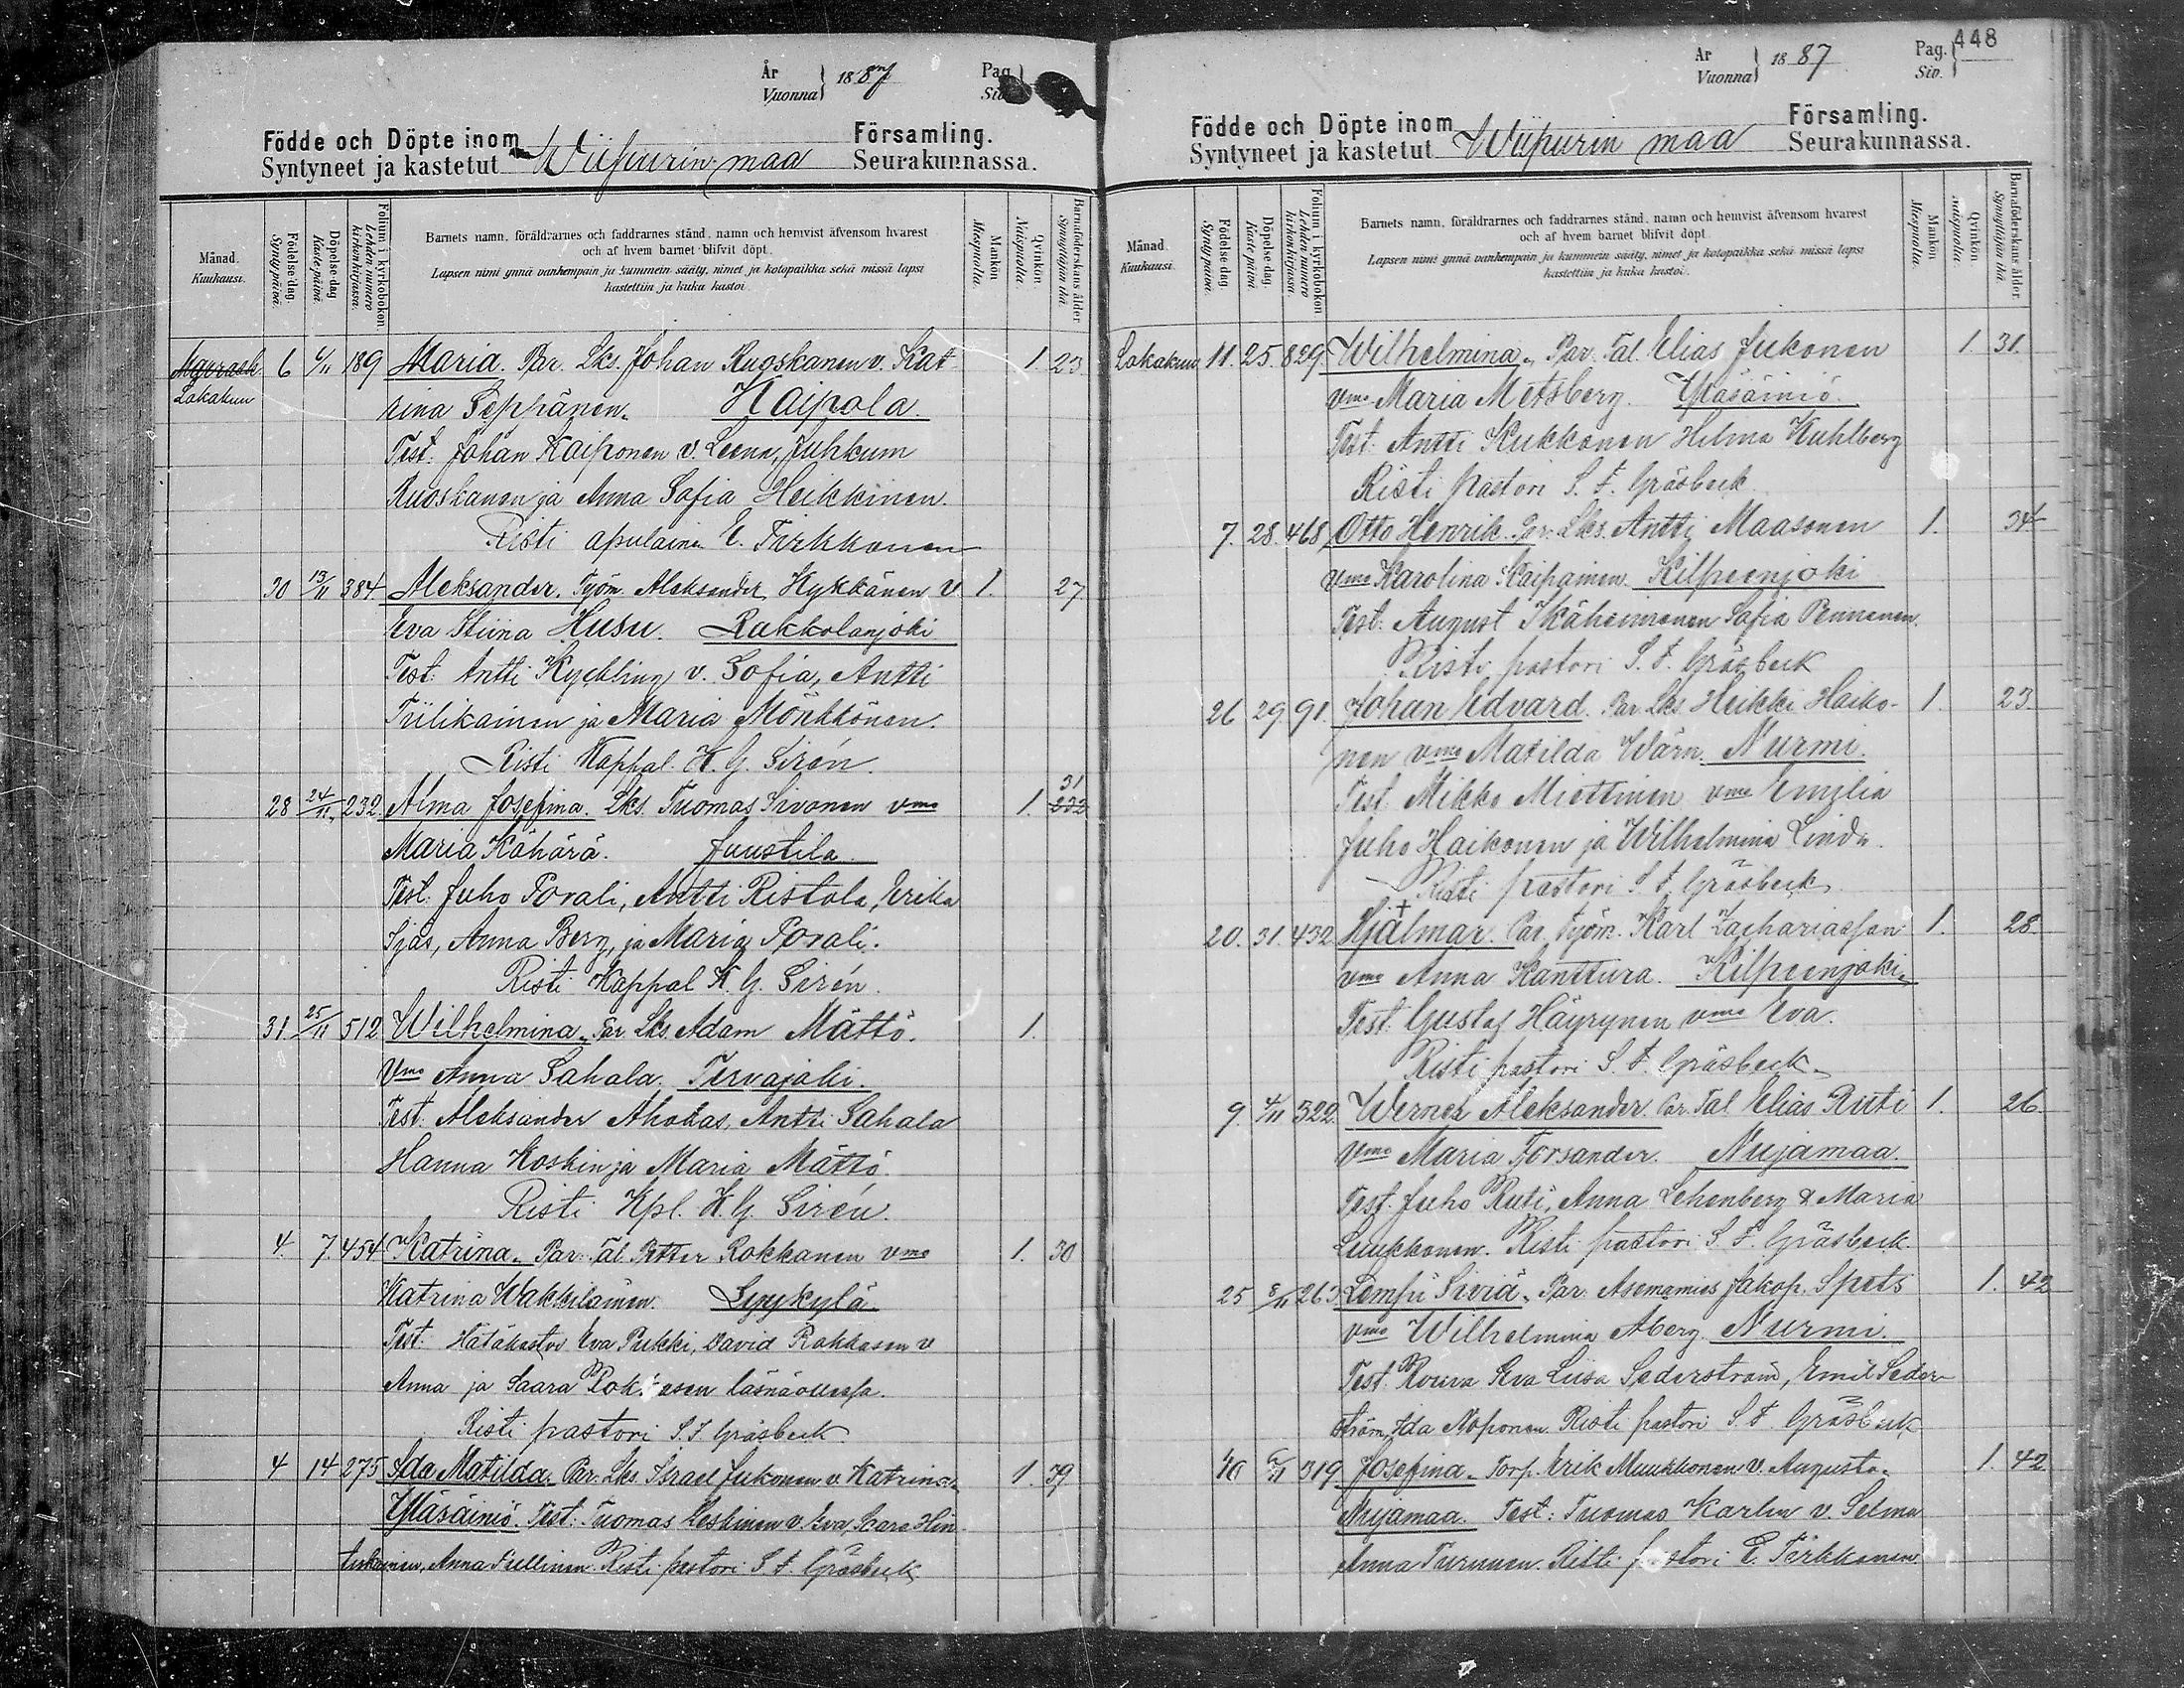 År
Vuonna } 1887
Pag.
Födde och Döpte inom Församling.
Syntyneet ja kastetut Wiipurin maa Seurakunnassa.
Månad.
Kuukausi.
Födelse dag.
Synty päivä.
Döpelse dag
Kaste päivä.
Folium i kyrkoboken
Lehden numero kirkonkirjassa.
Barnets namn, föräldrarnes och faddrarnes stånd, namn och hemvist äfvensom hvarest
och af hvem barnet blifvit döpt.
Lapsen nimi ynnä vanhempain ja kummein sääty, nimet ja kotopaikka sekä missä lapsi
kastettiin ja kuka kastoi.
Mankön
Miespuolia.
Qvinkön.
Naispuolia.
Barnaföderskans ålder
Synnyttäjän ikä.
Lokakuu 6 6/11 189 Maria. Par. Lks. Johan Ruoskanen v. Kat- 1. 23
rina Seppänen. Kaipola.
Test: Johan Kaiponen v. Leena, Juhkum
Ruoskanen ja Anna Sofia Heikkinen.
Risti apulainen E. Tirkkonen
30 13/11 384 Aleksander. Työm. Aleksander Kykkänen v. 1. 27.
Eva Stiina Husu. Rakkolanjoki
Test: Antti Kyckling v. Sofia, Antti
Tiilikainen ja Maria Mönkkönen.
Risti Kappal. K. G. Sirén.
31
28 24/11 232. Alma Josefina. Lks. Tuomas Sivonen vmo 1. 232
Maria Kähärä. Juustila
Test: Juho Porali, Antti Ristola, Erika
Sjäs, Anna Berg, ja Maria Porali.
Risti Kappal K. G. Sirén.
31. 25/11 512 Wilhelmina. Par. Lks. Adam Mättö. 1.
Vmo Anna Sahala. Tervajoki.
Test: Aleksander Ahokas, Antti Sahala
Hanna Koskin ja Maria Mättö.
Risti Kpl. K. G. Sirén.
4. 7. 454 Katrina. Par. Tal. Petter Rokkanen vmo 1. 30
Katrina Wakkilainen. Lyykylä
Test: Hätäkaste Eva Pukki, David Rokkasen v
Anna ja Saara läsnäollessa.
Risti pastori S. F. Gräsbeck
4 14 275 Ida Matilda. Par. Lks. Israel Jukonen v. Katrina. 1. 39
Yläsäiniö. Test: Tuomas Leskinen v. Eva, Saara Hin-
Anna Risti pastori S. F. Gräsbeck
År
Vuonna } 1887
Pag.
Siv. } 448
Födde och Döpte inom Församling.
Syntyneet ja kastetut Wiipurin maa Seurakunnassa.
Månad
Kuukausi.
Födelse dag.
Synty päivä.
Döpelse dag.
Kaste päivä.
Folium i kyrkoboken
Lehden numero kirkonkirjassa.
Barnets namn, föräldrarnes och faddrarnes stånd, namn och hemvist äfvensom hvarest
och af hvem barnet blifvit döpt.
Lapsen nimi ynnä vanhempain ja kummein sääty, nimet ja kotopaikka sekä missä lapsi
kastettiin ja kuka kastoi.
Mankön.
Miespuolia.
Qvinkön.
Naispuolia.
Barnaföderskans ålder.
Synnyttäjän ikä.
Lokakuu 11. 25. 829. Wilhelmina. Par. Tal. Elias Jukonen 1. 31.
vmo Maria Metsberg. Yläsäiniö.
Test: Antti Kukkonen Hilma Kuhlberg
Risti Pastori S. F. Gräsbeck
7. 28. 468 Otto Henrik. Par. Lks. Antti Maasonen 1. 34
vmo Karolina Kaipainen. Kilpeenjoki
Test: August Ikäheimonen Sofia Pennanen.
Risti pastori S. F. Gräsbeck
26 29 91. Johan Edvard. Par. Lks. Heikki Haiko- 1. 23.
nen vmo Matilda Wärn. Nurmi.
Test: Mikko Miettinen vmo Emilia
Juho Haikonen ja Wilhelmina Lindu.
Risti pastori S. F. Gräsbeck
20. 31. 432 Hjalmar. Par. Työm. Karl Zachariasson 1. 28.
vmo Anna Kanttura. Kilpeenjoki.
Test: Gustaf Häyrynen vmo Eva.
Risti pastori S. F. Gräsbeck.
9. 4/11 522. Werner Aleksander. Par. Tal. Elias Ruti 1. 26.
vmo Maria Forsander. Nujamaa.
Test. Juho Ruti, Anna Lehenberg & Maria
Luukkonen. Risti pastori S. F. Gräsbeck.
25 8/11 263 Lempi Siviä. Par. Asemamies Jakop. Spets 1. 42
vmo Wilhelmina Åberg. Nurmi.
Test. Rouva Eva Liisa Sederström, Emil Seder-
ström, Ida Noponen. Risti pastori S. F. Gräsbeck
10 6/11 319 Josefina. Torp. Erik Muukkonen v. Augusta. 1. 42
Nujamaa. Test: Tuomas Karlin v. Selma
Anna Turunen. Risti pastori E. Tirkkonen.